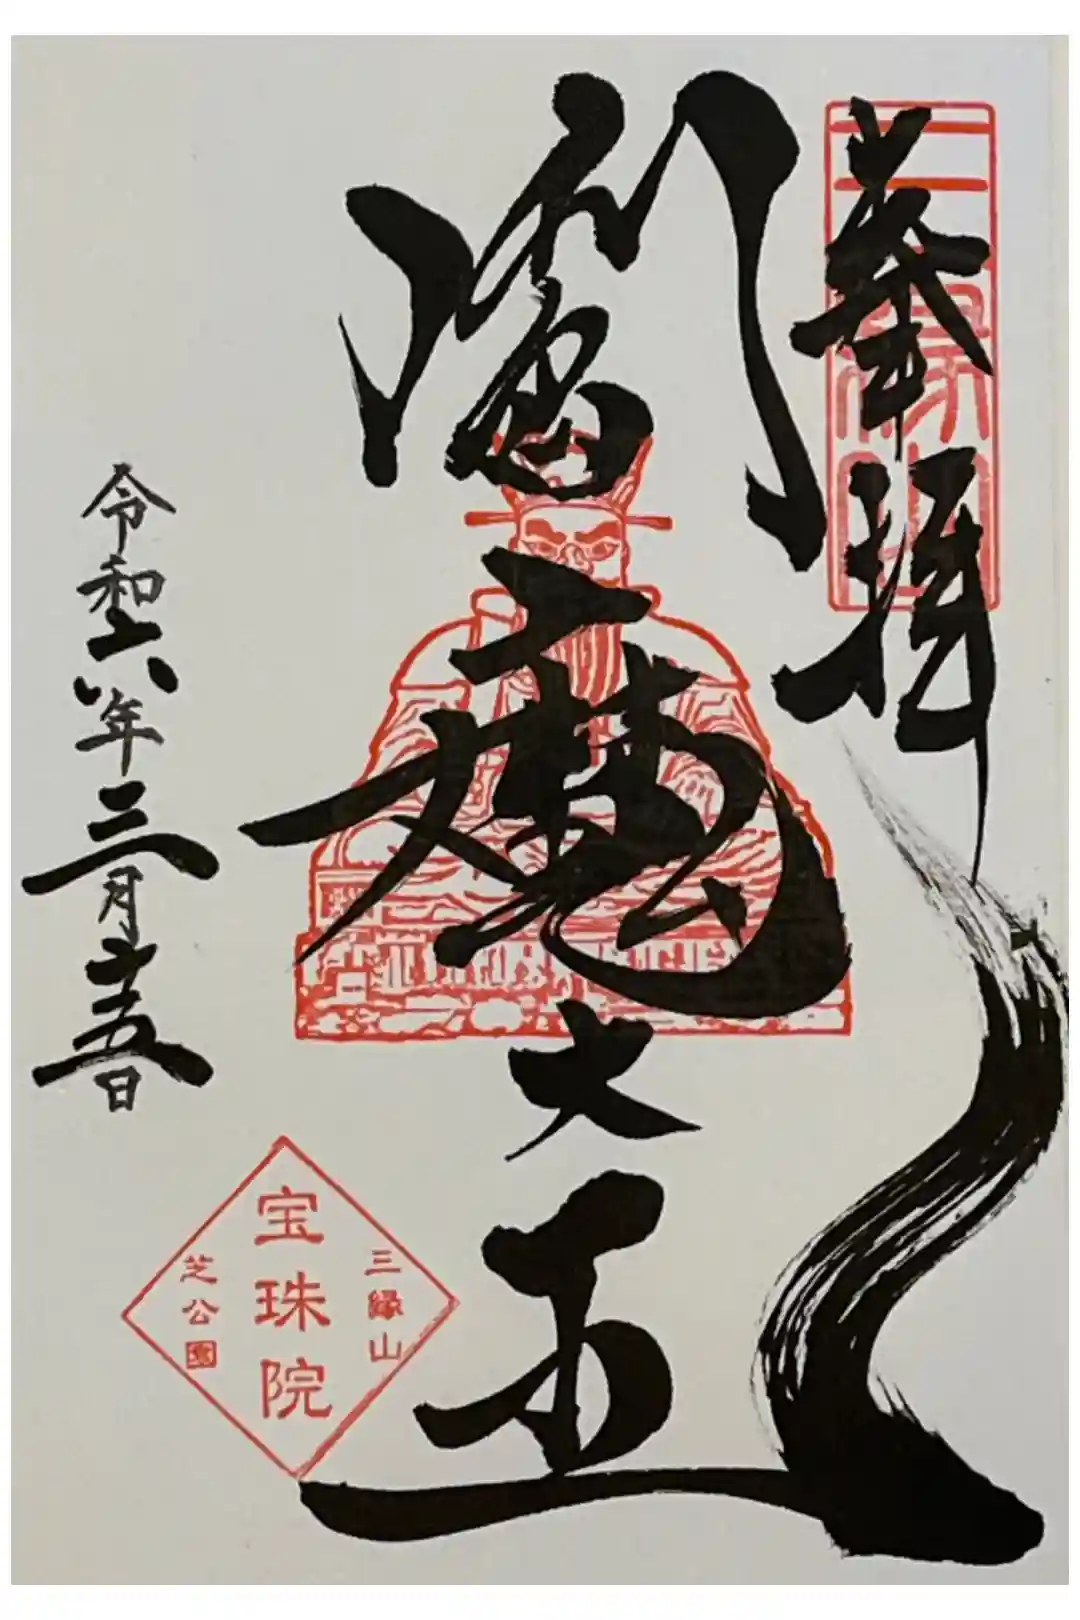 奉拝
三縁山
閻魔大王
令和六年三月十五日
三縁山
宝珠院
芝公園